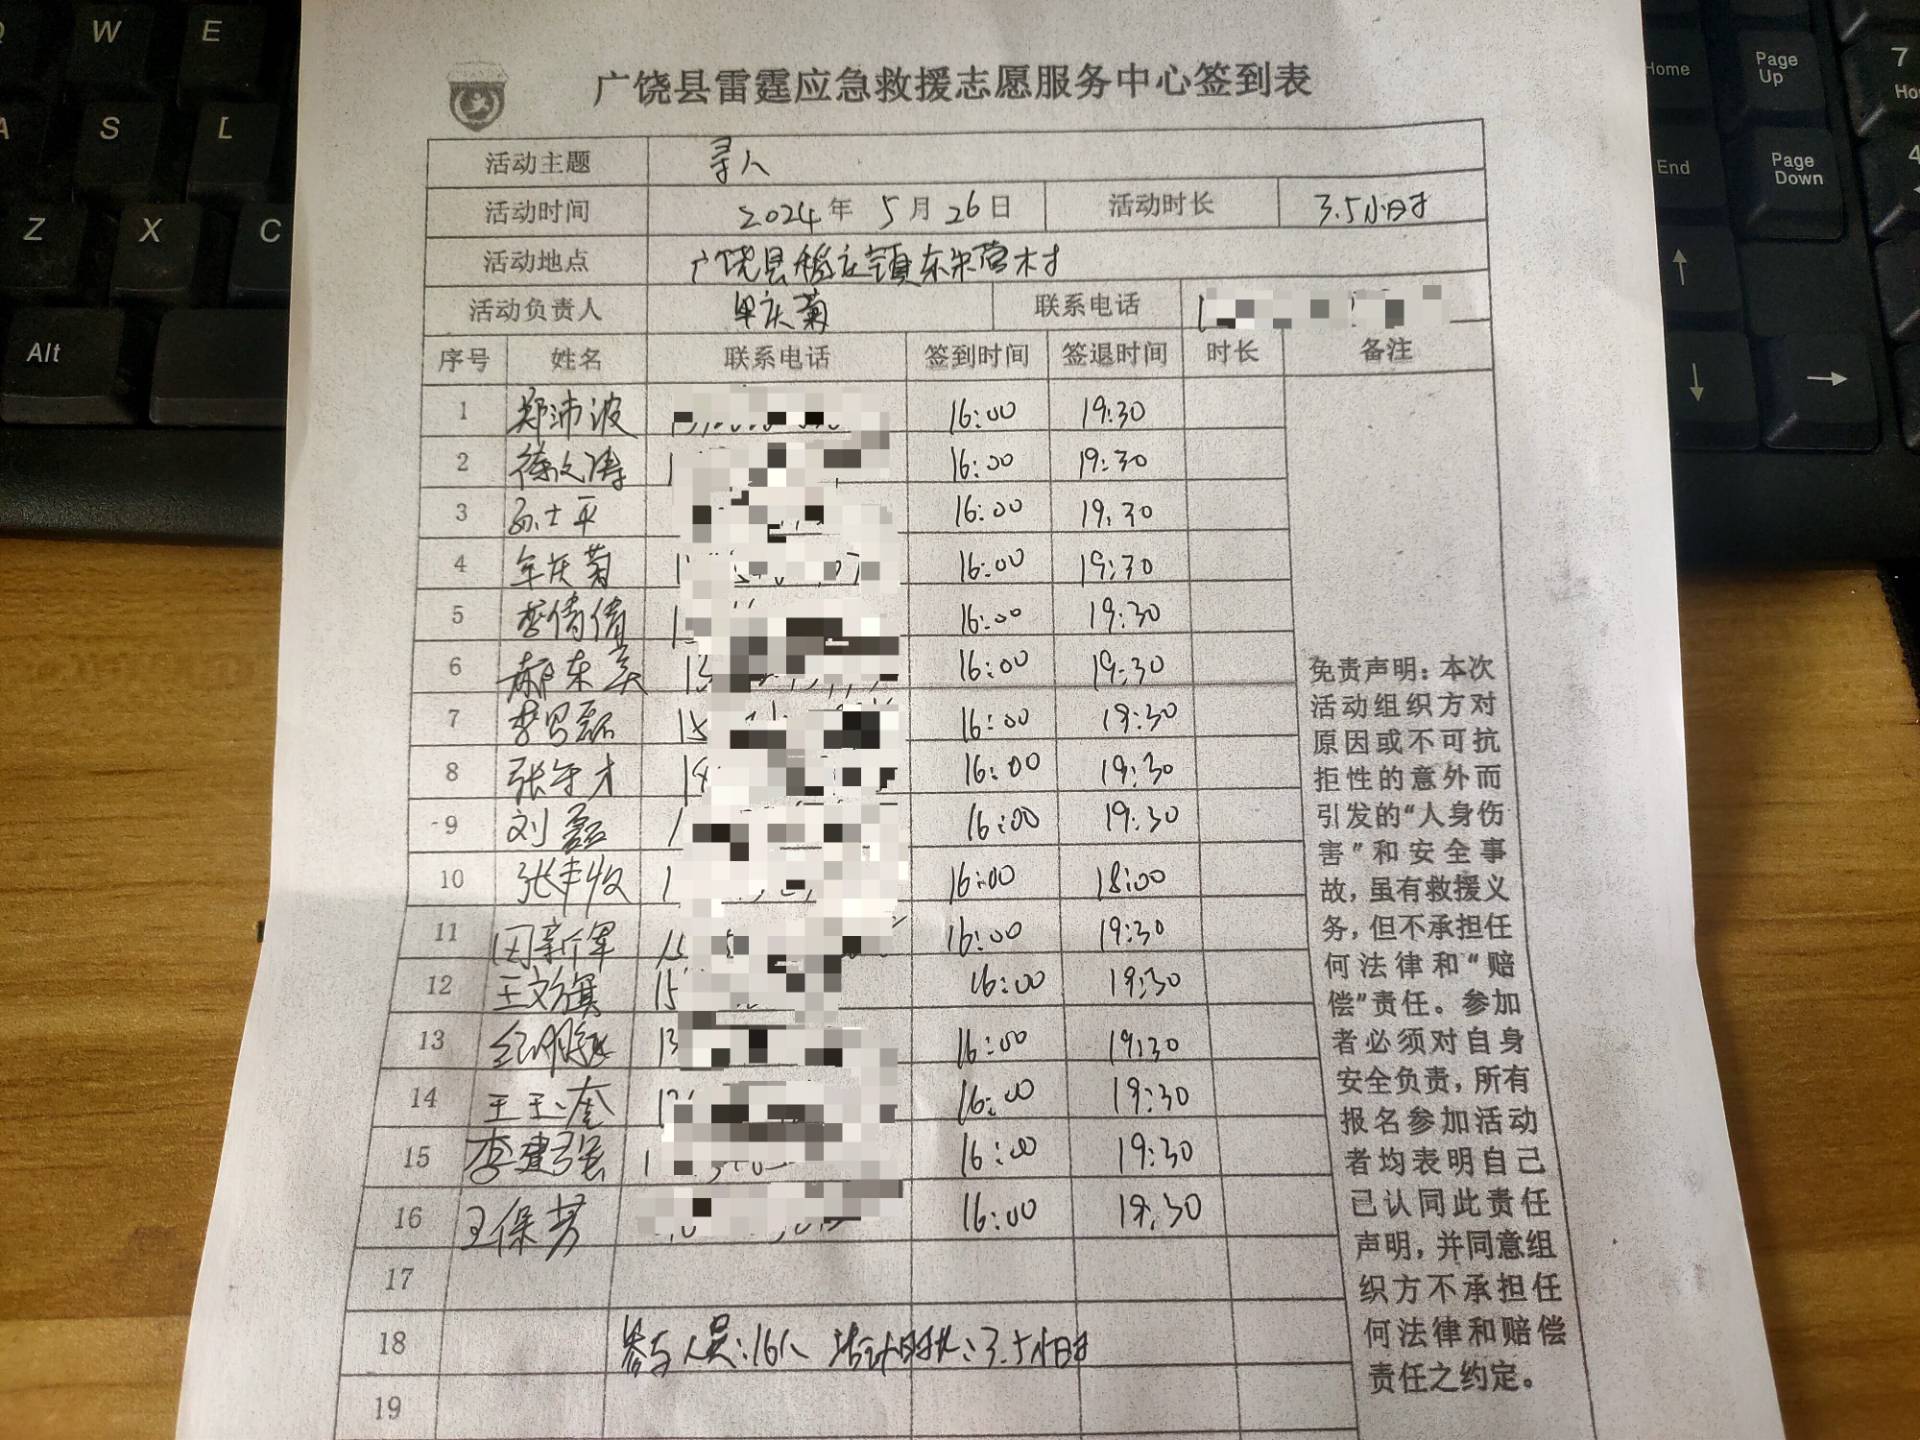 广饶县雷霆应急救援志愿服务中心签到表
活动主题 寻人
活动时间 2024年5月26日 活动时长 3.5小时
活动地点 广饶县稻庄镇东米营村
活动负责人 牟庆菊 联系电话
序号 姓名 联系电话 签到时间 签退时间 时长 备注
1 郑沛波 16:00 19:30
2 徐文涛 16:00 19:30
3 孙士平 16:00 19:30
4 牟庆菊 16:00 19:30
5 李倩倩 16:00 19:30
6 郝东英 16:00 19:30
7 李昌磊 16:00 19:30
8 张守才 16:00 19:30
9 刘磊 16:00 19:30
10 张丰收 16:00 18:00
11 田新军 16:00 19:30
12 王文旗 16:00 19:30
13 16:00 19:30
14 王玉奎 16:00 19:30
15 李建强 16:00 19:30
16 王保芳 16:00 19:30
17
18 参与人员:16人 活动时长:3.5小时
19
免责声明:本次
活动组织方对
原因或不可抗
拒性的意外而
引发的“人身伤
害”和安全事
故,虽有救援义
务,但不承担任
何法律和“赔
偿”责任。参加
者必须对自身
安全负责,所有
报名参加活动
者均表明自己
已认同此责任
声明,并同意组
织方不承担任
何法律和赔偿
责任之约定。
Q W E
A S L
Z X C
Alt
Home Page Up 7 Ho
End Page Down 4
↑
↓ →